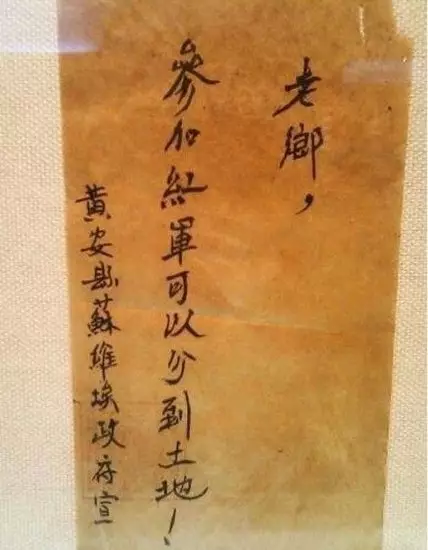 老鄉，
參加紅軍可以分到土地！
黃安县蘇維埃政府宣